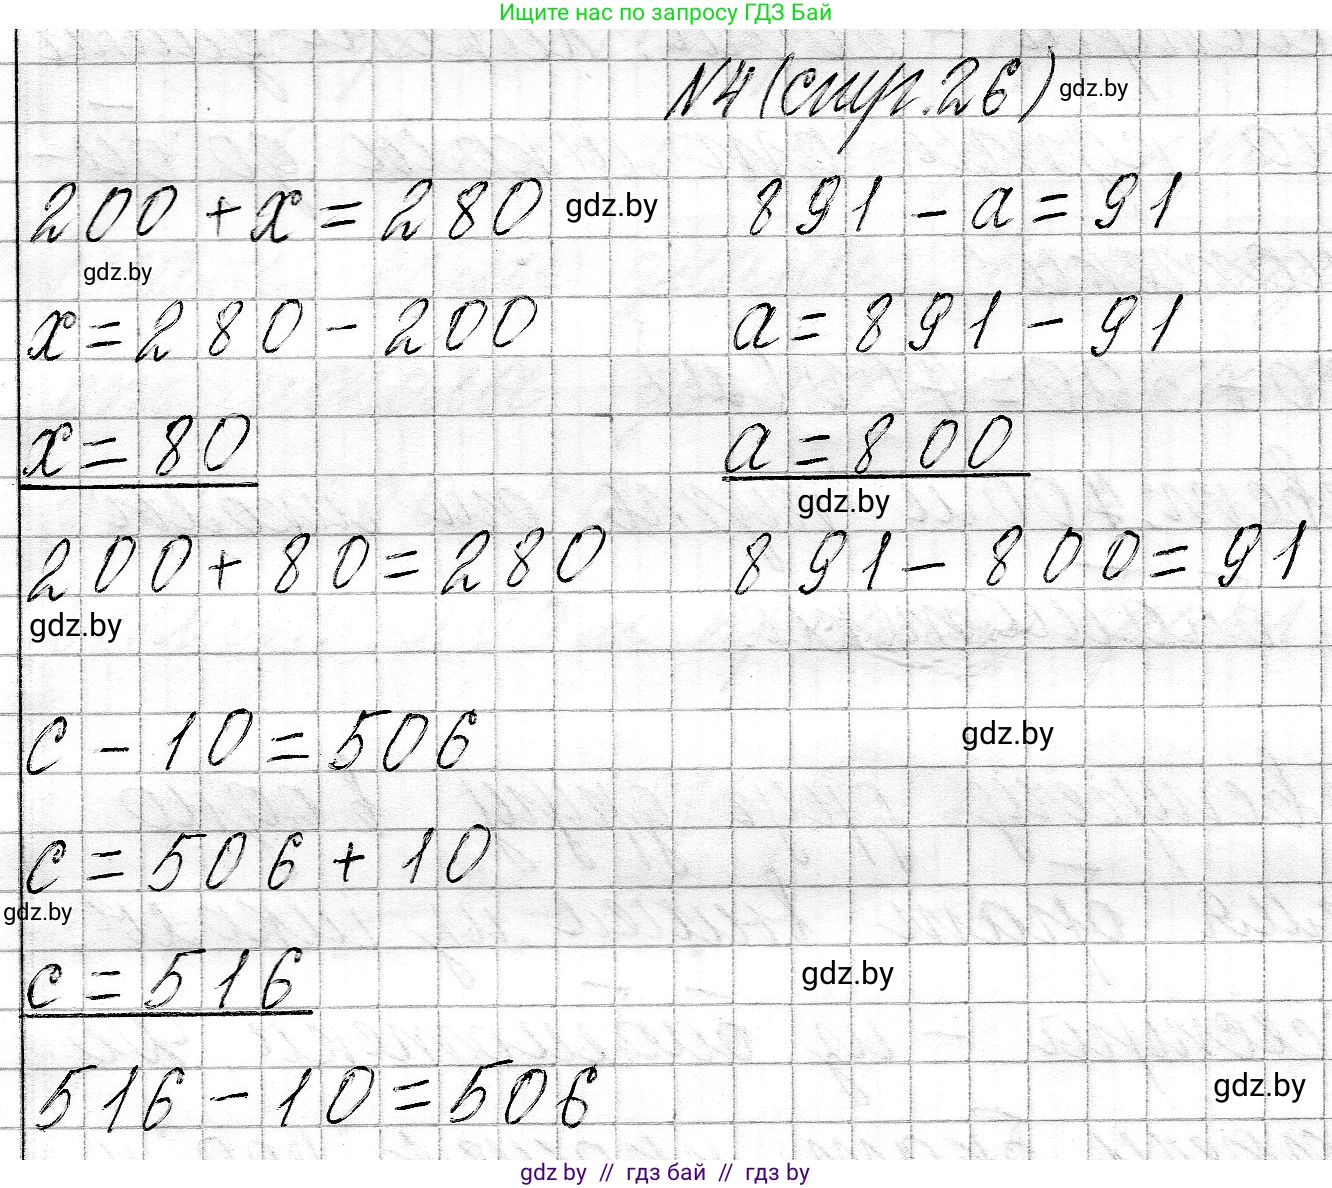 Ищите нас по запросу ГДЗ Бай
№4 (стр. 26) gdz.by
200 + x = 280 gdz.by 891 - a = 91
gdz.by
x = 280 - 200 a = 891 - 91
x = 80 a = 800
gdz.by
200 + 80 = 280 891 - 800 = 91
gdz.by
c - 10 = 506 gdz.by
c = 506 + 10
gdz.by
c = 516 gdz.by
516 - 10 = 506 gdz.by
gdz.by // гдз бай // гдз by